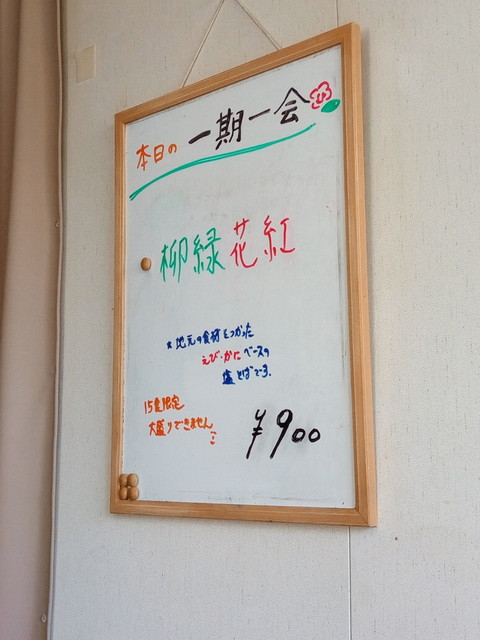 本日の 一期一会
柳緑花紅
*地元の食材をつかった
えび・かにベースの
塩そばです。
15食限定
大盛りできません
¥900